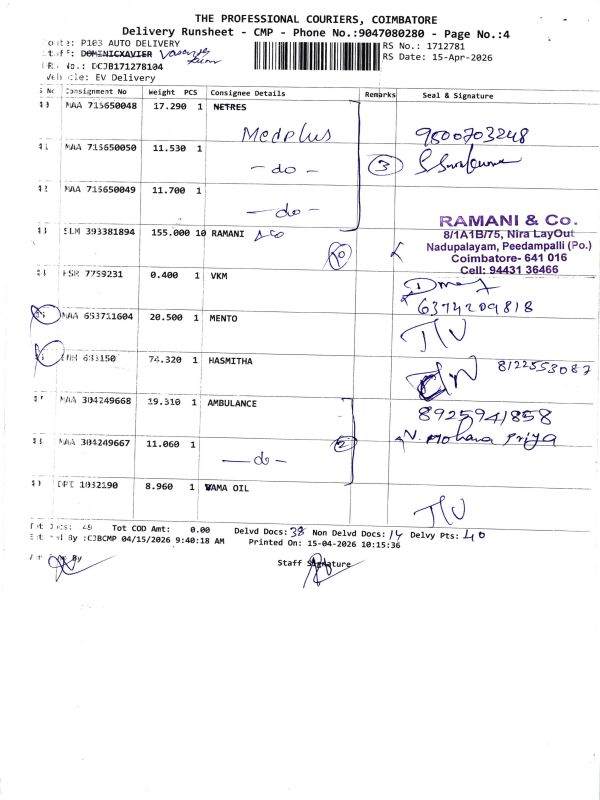 THE PROFESSIONAL COURIERS, COIMBATORE
Delivery Runsheet - CMP - Phone No.:9047080280 - Page No.:4
Route: P103 AUTO DELIVERY
RS No.: 1712781
Staff: DOMINICXAVIER
RS Date: 15-Apr-2026
DRS No.: DCJB171278104
Vehicle: EV Delivery
S No Consignment No Weight PCS Consignee Details Remarks Seal & Signature
40 MAA 715650048 17.290 1 NETRES
Medplus
9500703248
41 MAA 715650050 11.530 1
- do -
3
42 MAA 715650049 11.700 1
- do -
43 SLM 393381894 155.000 10 RAMANI & Co
10
RAMANI & Co.
8/1A1B/75, Nira LayOut
Nadupalayam, Peedampalli (Po.)
Coimbatore- 641 016
Cell: 94431 36466
44 HSR 7759231 0.400 1 VKM
6374209818
45 MAA 653711604 20.500 1 MENTO
633150 74.320 1 HASMITHA
8122553087
47 MAA 304249668 19.310 1 AMBULANCE
8925941858
N. Mohana Priya
2
48 MAA 304249667 11.060 1
- do -
49 DPI 1032190 8.960 1 VAMA OIL
Tot Docs: 49 Tot COD Amt: 0.00 Delvd Docs: 38 Non Delvd Docs: 14 Delvy Pts: 40
Entered By :CJBCMP 04/15/2026 9:40:18 AM Printed On: 15-04-2026 10:15:36
By
Staff Signature